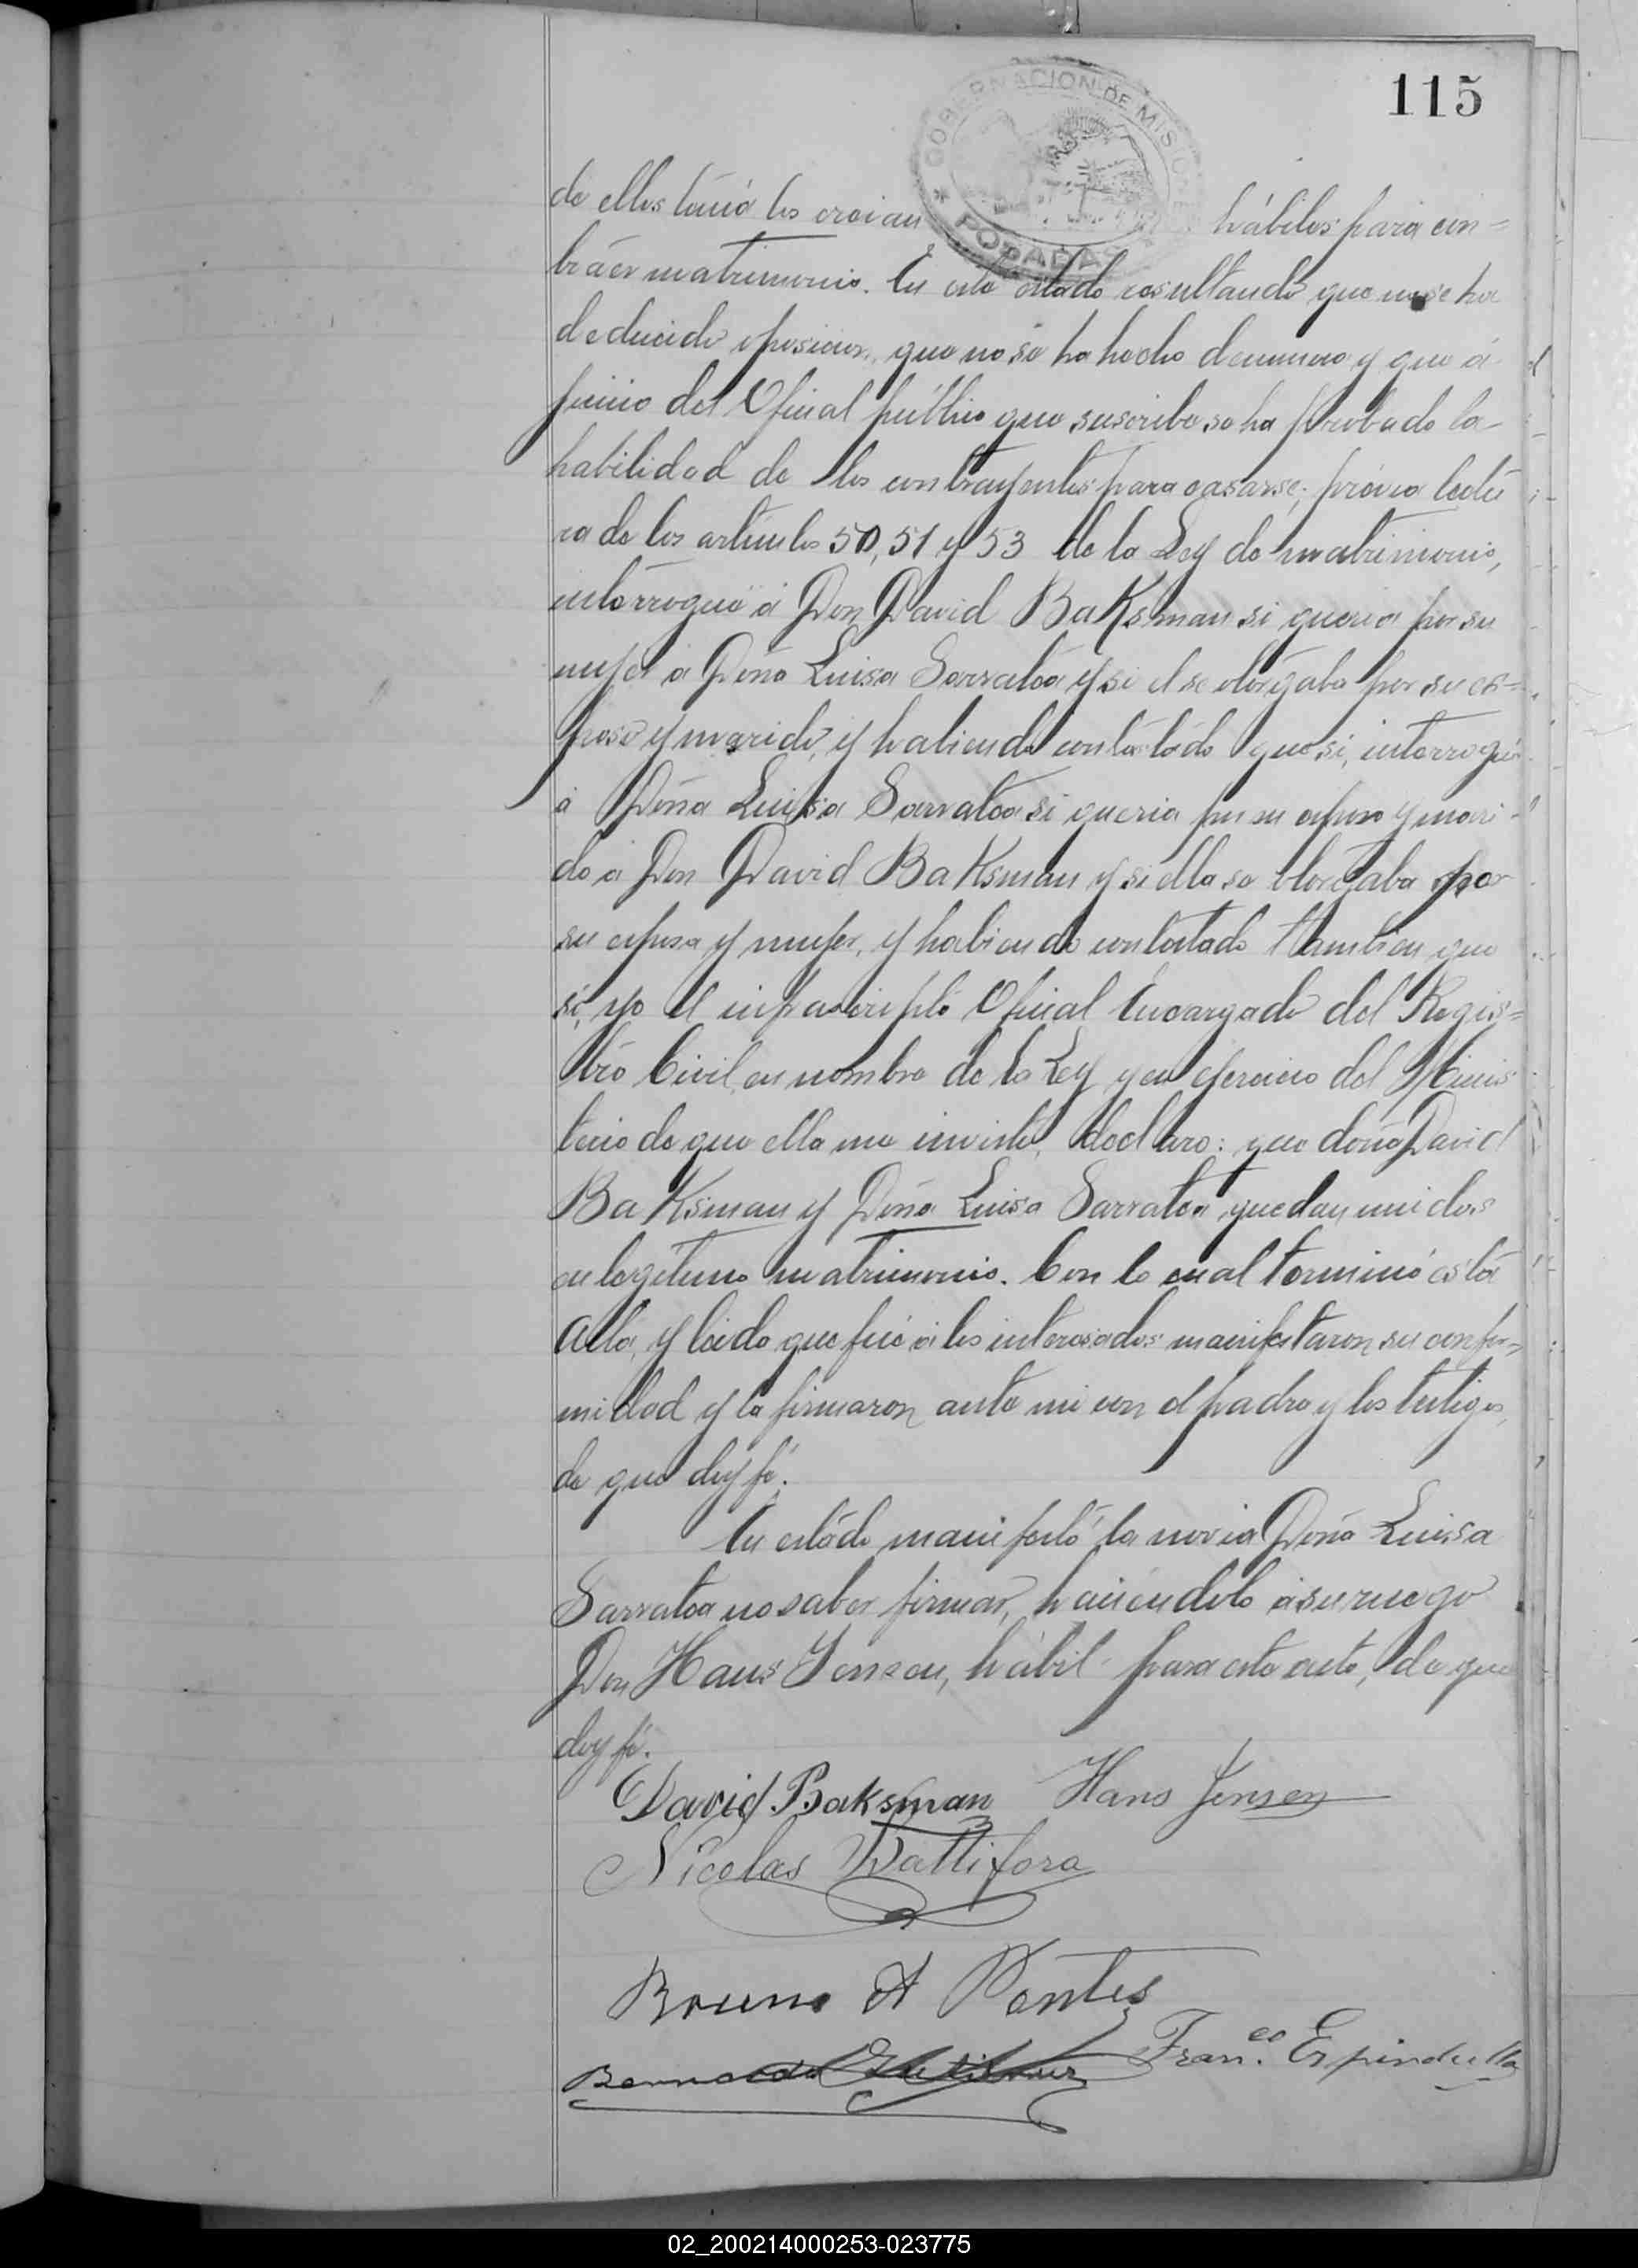 115
GOBERNACION DE MISIONES
* POSADAS
de ellos tenia los creian hábiles para con=
traer matrimonio. En este estado resultando que no se ha
deducido oposicion, que no se ha hecho denuncia y que á
juicio del Oficial público que suscribe se ha probado la
habilidad de los contrayentes para casarse; prévia lectu
ra de los artículos 50, 51 y 53 de la Ley de matrimonio,
interrogué á Don David BaKsman si queria por su
mujer á Doña Luisa Sarratea y si el se otorgaba por su es=
poso y marido, y habiendo contestado que si, interrogué
á Doña Luisa Sarratea si queria por su esposo y mari-
do á Don David BaKsman y si ella se otorgaba por
su esposa y mujer, y habiendo contestado tambien que
sí, yo el infrascripto Oficial Encargado del Regis=
tro Civil, en nombre de la Ley y en ejercicio del Minis
terio de que ella me inviste, declaro: que don David
BaKsman y Doña Luisa Sarratea, quedan unidos
en legítimo matrimonio. Con lo cual terminó esta
Acta, y leida que fué á los interesados manifestaron su confor=
midad y la firmaron ante mi con el padre y los testigos,
de que doy fé.
En estado manifestó la novia Doña Luisa
Sarratea no saber firmar, haciendolo á su ruego
Don Hans Jensen, hábil para este acto, de que
doy fé.
David Baksman Hans Jensen
Nicolas Wattifora
Bruno A Pontes
Bernardo Franco. Espindulla
02_200214000253-023775